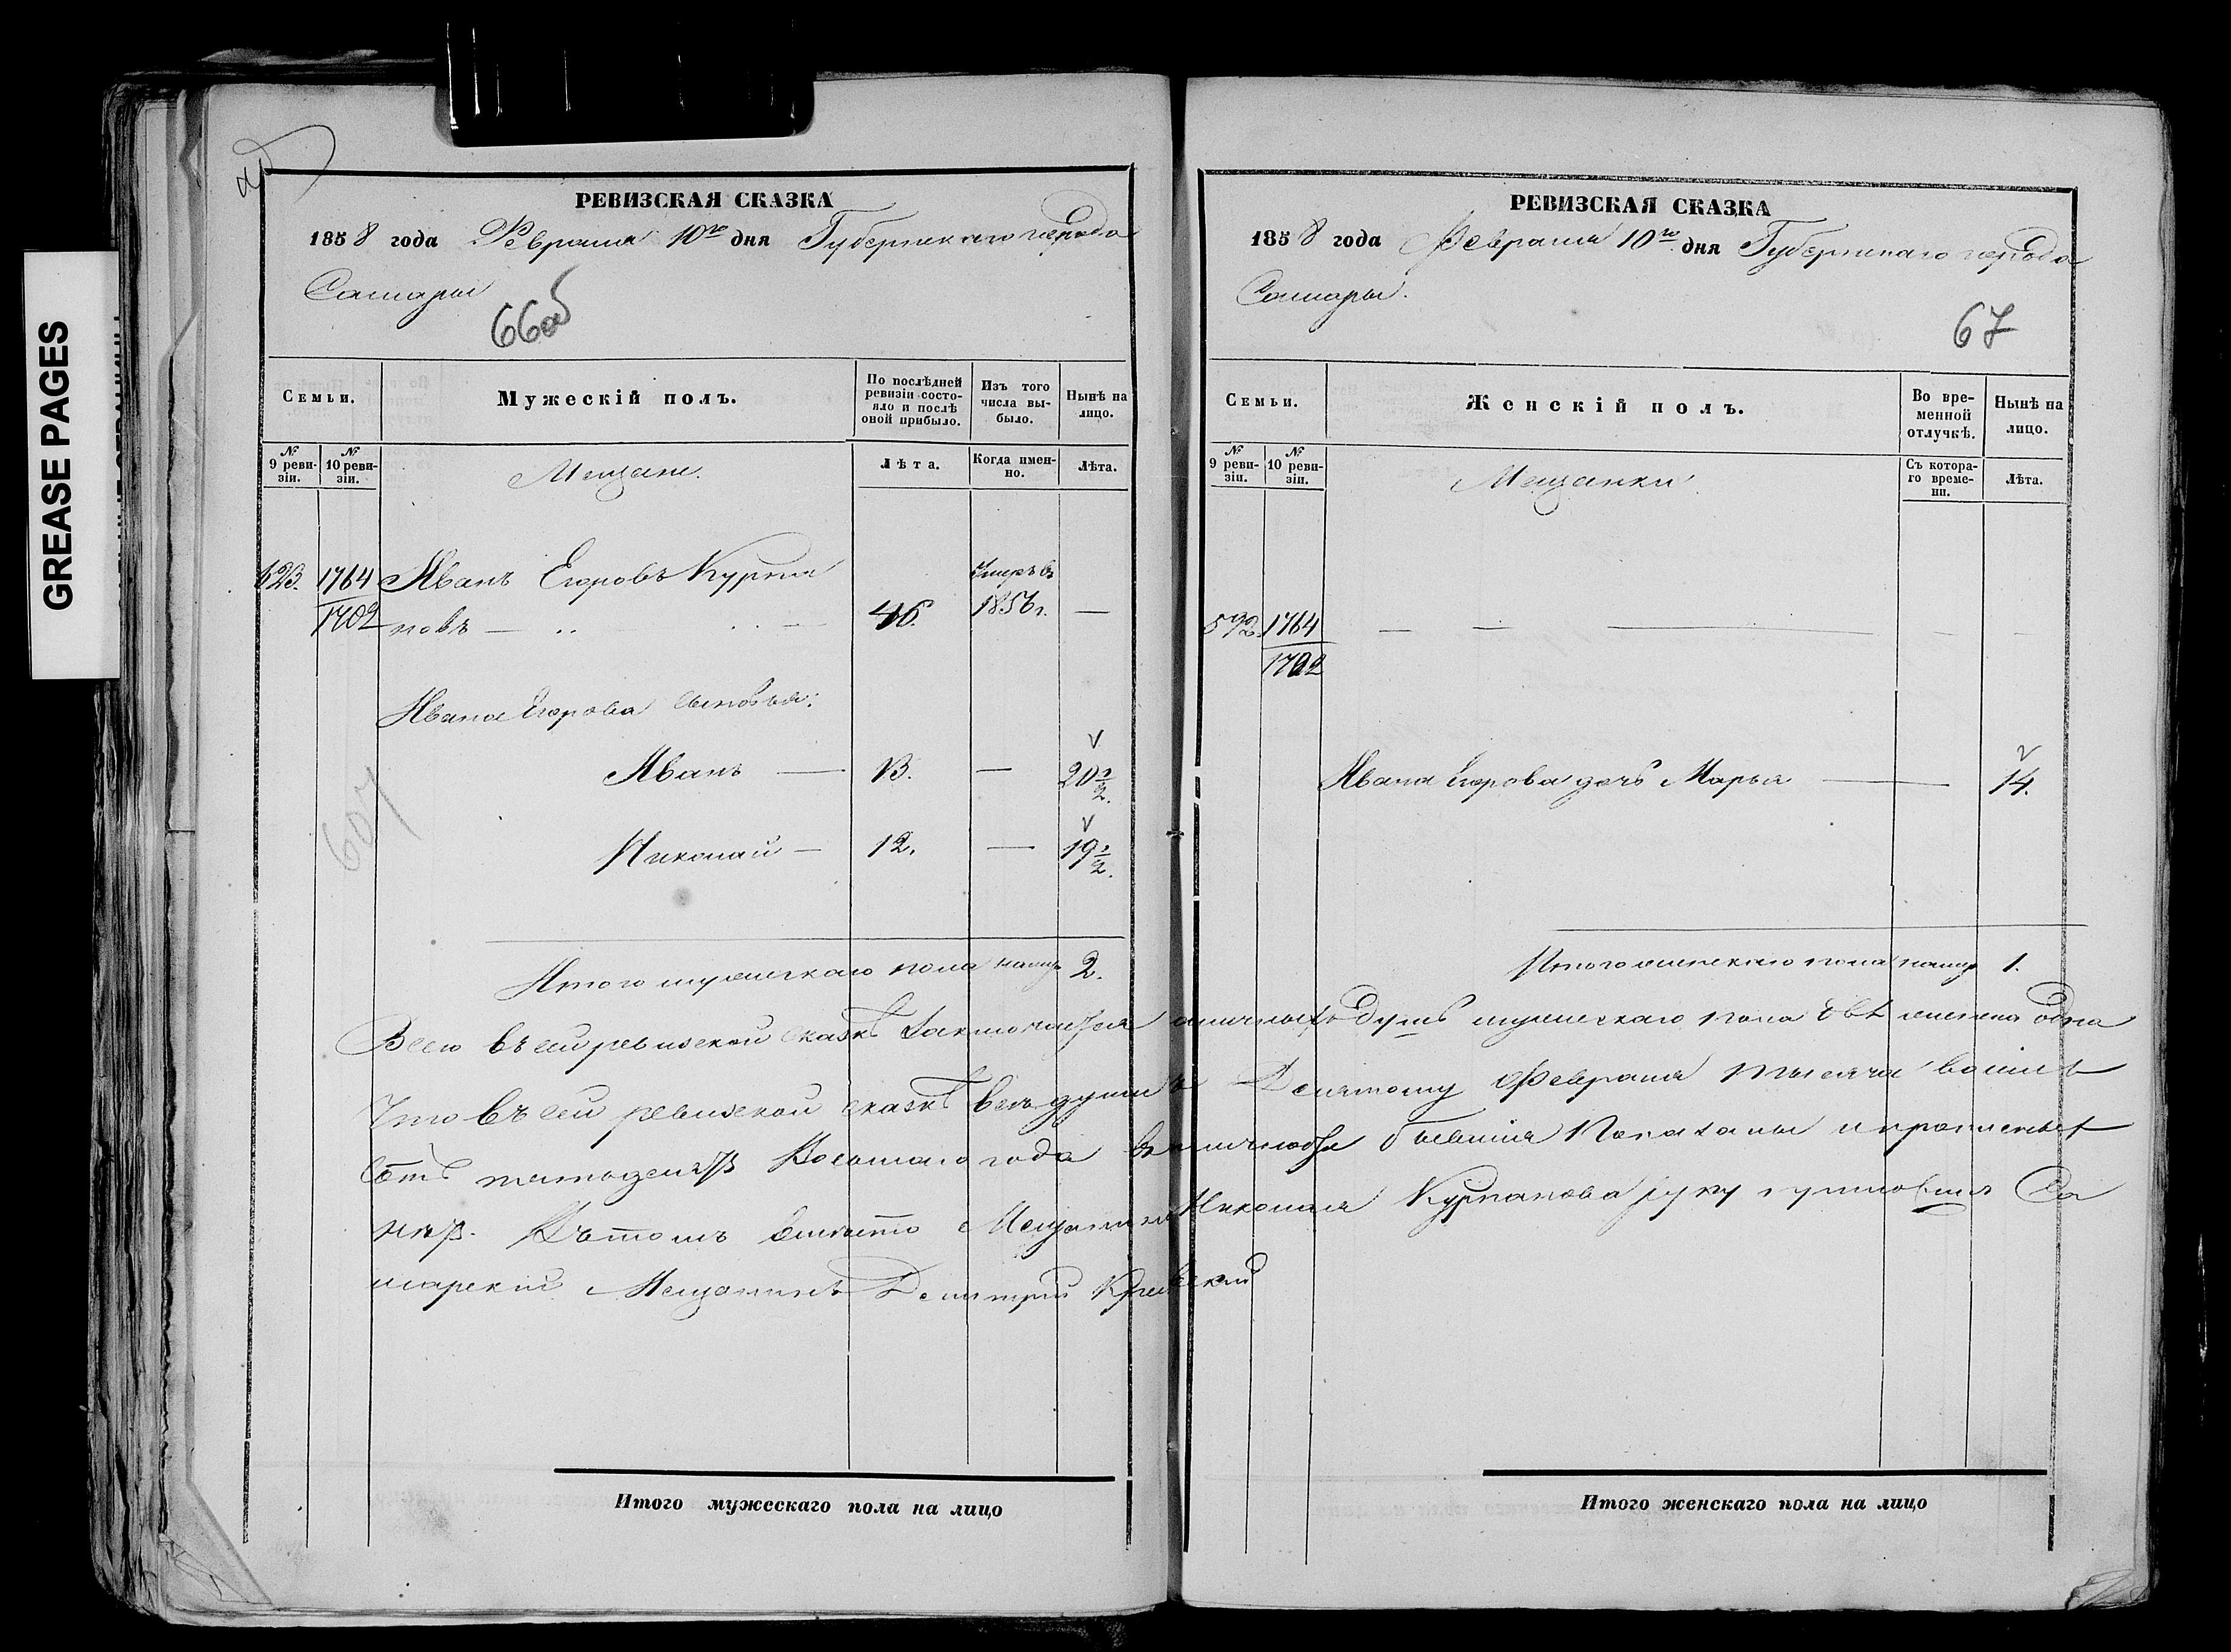 GREASE PAGES
РЕВИЗСКАЯ СКАЗКА
1858 года Февраля 10го дня Губернскаго города
Самары
66об
Семьи.
Мужескій полъ.
По послѣдней ревизіи состояло и послѣ оной прибыло.
Изъ того числа выбыло.
Нынѣ на лицо.
№ 9 ревизіи.
№ 10 ревизіи.
Мещане.
Лѣта.
Когда именно.
Лѣта.
623. 1764 Иванъ Егоровъ Курпа Умеръ въ
1702 новъ — 46. 1856г. —
Ивана Егорова сыновья:
Иванъ — 13. — 20 1/2.
607
Николай — 12. — 19 1/2.
Итого мужескаго пола налицо 2.
РЕВИЗСКАЯ СКАЗКА
1858 года Февраля 10го дня Губернскаго города
Самары.
67
Семьи.
Женскій полъ.
Во временной отлучкѣ.
Нынѣ на лицо.
№ 9 ревизіи.
№ 10 ревизіи.
Мещанки
Съ котораго времени.
Лѣта.
592. 1764 — — —
1702
Ивана Егорова дочь Марья — 14.
Итого женскаго пола налицо 1.
Всего въ сей ревизской сказкѣ заключается наличныхъ душъ мужескаго пола двѣ женска одна
Что въ сей ревизской сказкѣ всѣ души къ Десятому Февраля тысяча восемь
сотъ пятьдесятъ Восьмаго года въ наличности бывшія Показаны и прописных
нѣтъ. Въ томъ вмѣсто Мещанина Николая Курпанова руку приложилъ Са
марскій Мещанинъ Дмитрій
Итого мужескаго пола на лицо
Итого женскаго пола на лицо